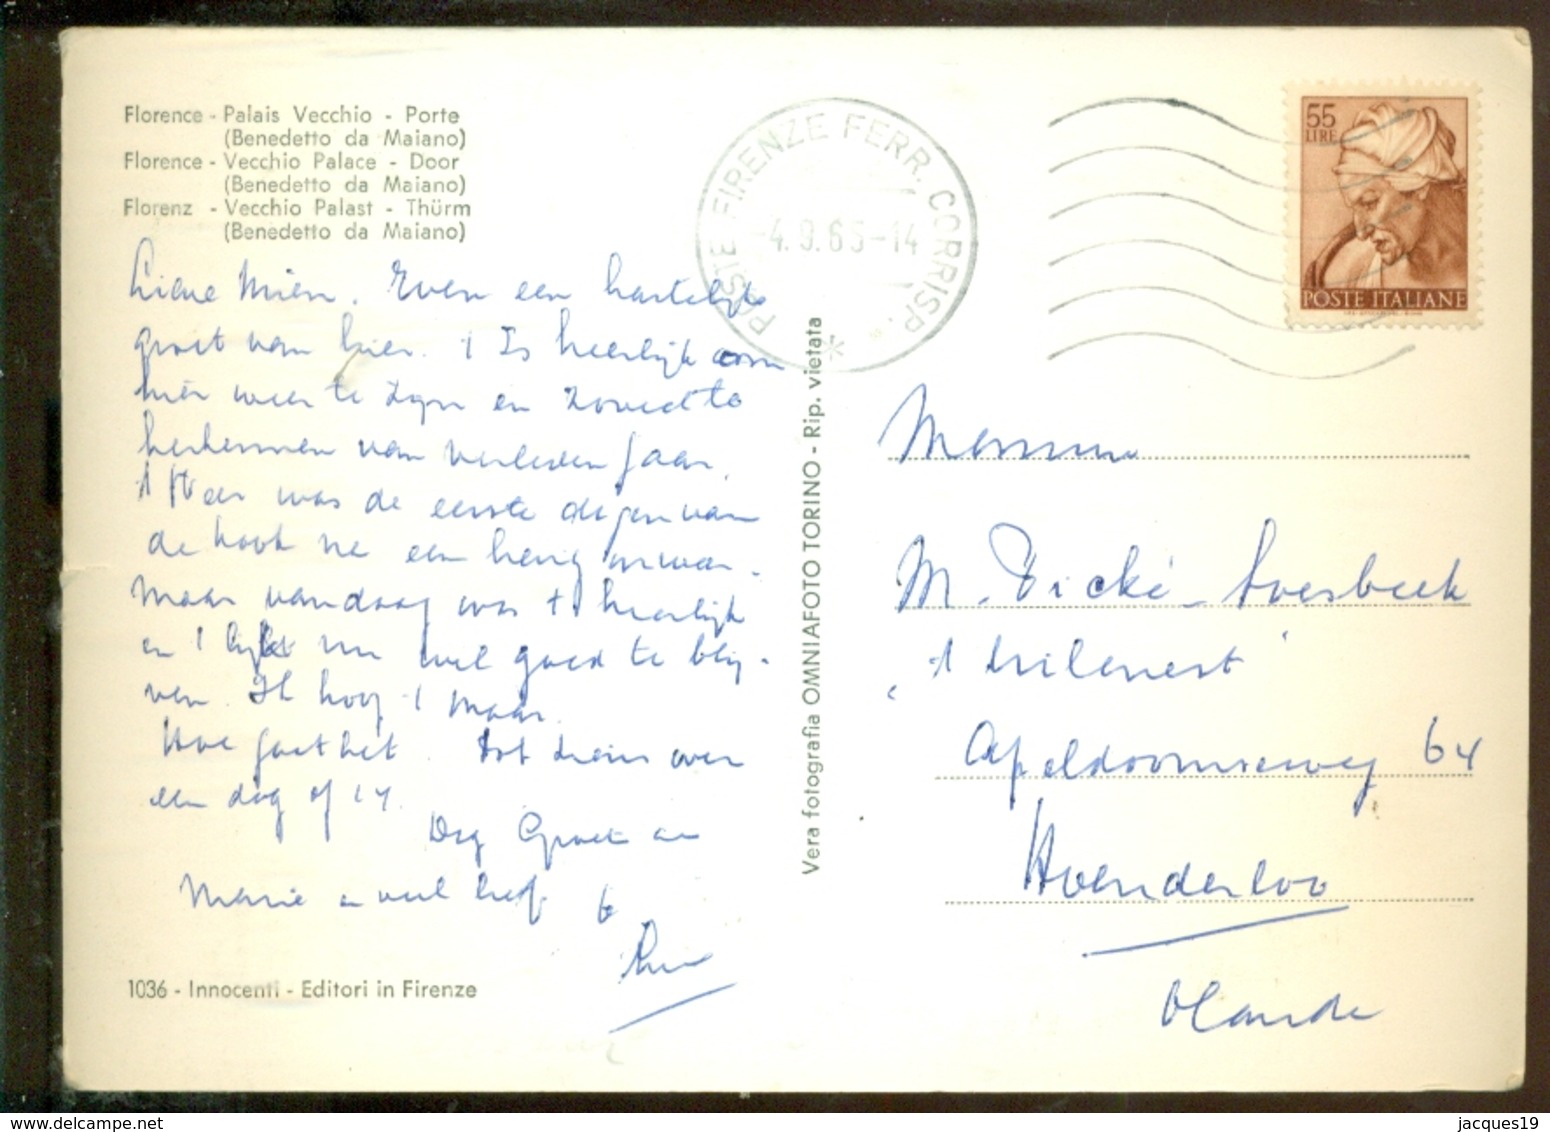 Florence - Palais Vecchio - Porte
(Benedetto da Maiano)
Florence - Vecchio Palace - Door
(Benedetto da Maiano)
Florenz - Vecchio Palast - Thürm
(Benedetto da Maiano)
Lieve Mien. Even een hartelijke
groet van hier. 't Is heerlijk om
hier weer te zijn en zoveel te
herkennen van verleden jaar.
't Weer was de eerste dagen van
de
maar vandaag was 't heerlijk
en 't lijkt nu wel goed te blij-
ven. Ik hoop 't maar.
Hoe gaat het. Tot ziens over
een dag of 14.
Dag Groet aan
Marie en veel liefs
POSTE FIRENZE FERR. CORRISP.
-4.9.65-14
55
LIRE
POSTE ITALIANE
Vera fotografia OMNIAFOTO TORINO - Rip. vietata
M.
Apeldoornseweg 64
Hoenderloo
Olanda
1036 - Innocenti - Editori in Firenze
www.delcampe.net
jacques19